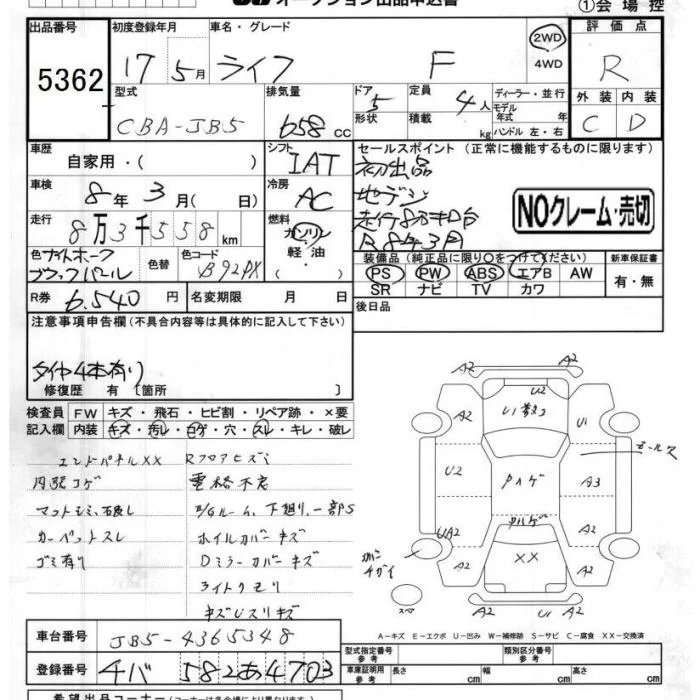 オークション出品申込書
①会場控
出品番号 5362
初度登録年月 17 5月
車名・グレード ライフ F
2WD 4WD
評価点 R
型式 CBA-JB5
排気量 658 cc
ドア 5 形状
定員 4人 積載 kg
ディーラー・並行
モデル年式 年
ハンドル 左・右
外装 C 内装 D
車歴 自家用・( )
シフト IAT
セールスポイント (正常に機能するものに限ります)
初出品
地デジ
走行8万キロ台
R8年3月
NOクレーム・売切
車検 8年3月( 日)
冷房 AC
走行 8万3千558km
燃料 ガソリン 軽油・
色 ナイトホークブラックパール
色替
色コード B92PX
装備品(純正品に限り○をつけてください)
PS PW ABS エアB AW
SR ナビ TV カワ
新車保証書 有・無
R券 6.540円
名変期限 月 日
後日品
注意事項申告欄(不具合内容等は具体的に記入して下さい)
タイヤ4本有り
修復歴 有 [箇所 ]
検査員記入欄
FW キズ・飛石・ヒビ割・リペア跡・×要
内装 キズ・汚レ・コゲ・穴・スレ・キレ・破レ
エンドパネルXX Rフロアヒズミ
内張コゲ
マットシミ、
カーペットスレ ホイルカバーキズ
ゴミ有り Dミラーカバーキズ
ライトクモリ
A2 A2
A2 U2 U1
U2 A3
UA2 A2
XX
A2 A2
U1 A2
A-キズ E-エクボ U-凹み W-補修跡 S-サビ C-腐食 XX-交換済
車台番号 JB5-4365348
型式指定番号 参考
類別区分番号 参考
登録番号 チバ 582あ4703
車庫証明用 参考 長さ cm 幅 cm 高さ cm
希望出品コーナー